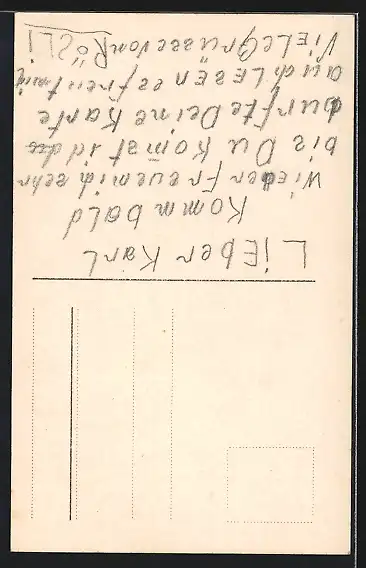 LiEber Karl
Komm bald
wieder Freue mich sehr
bis Du Komst id
Durfte Deine Karte
auch LESEN es freut mich
Viele Grüsse von RÖSLI